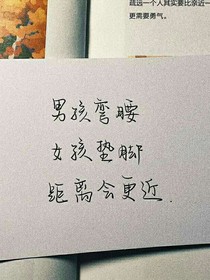 疏远一个人其实要比亲近一
更需要勇气。
男孩弯腰
女孩垫脚
距离会更近.